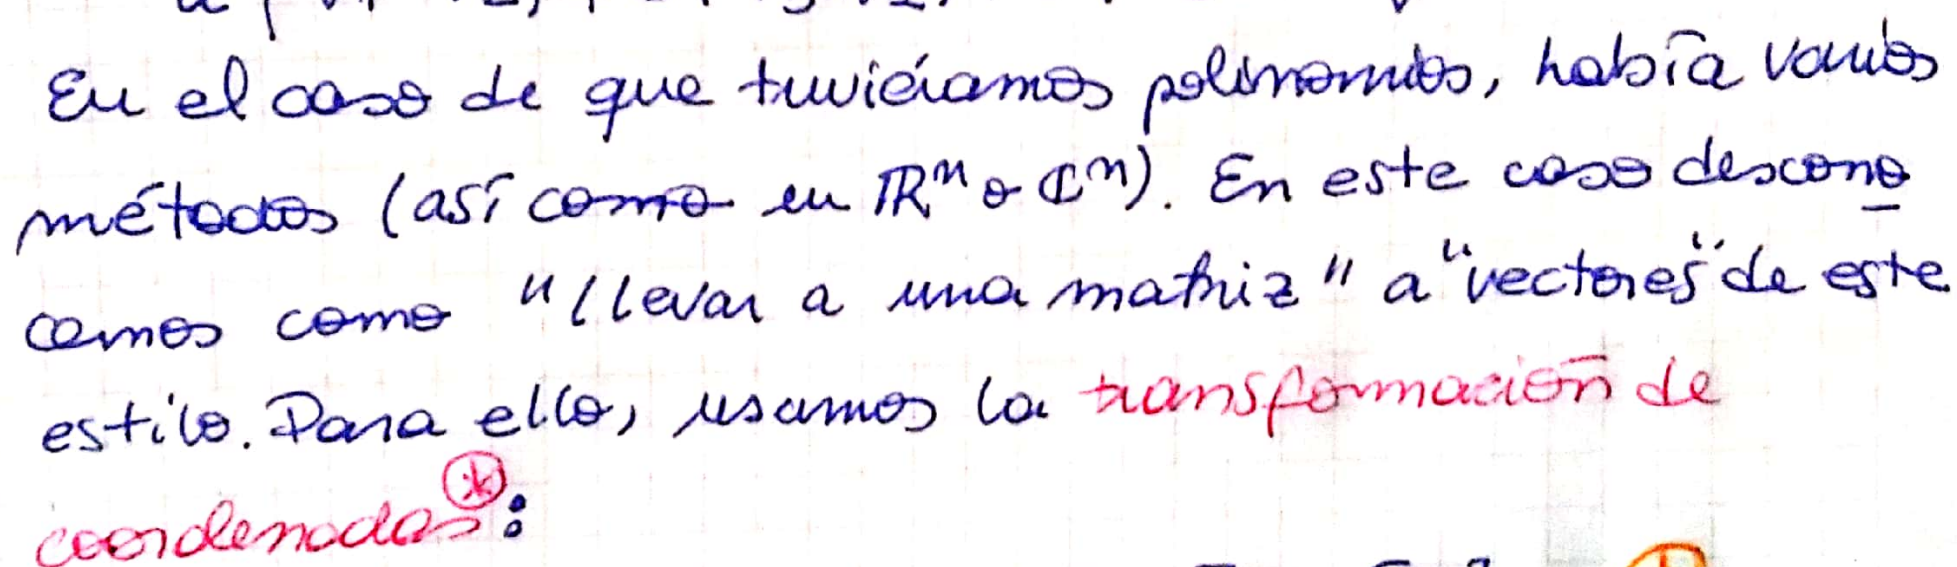 En el caso de que tuviéramos polinomios, había varios
métodos (así como en ℝⁿ o ℂⁿ). En este caso descono
cemos como "llevar a una matriz" a "vectores" de este
estilo. Para ello, usamos la transformación de
coordenadas(*):